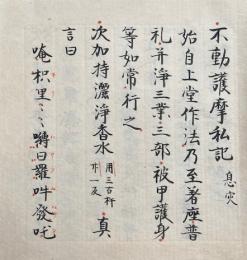 不動護摩私記 息災
始自上堂作法乃至著座普
礼并淨三業三部被甲護身
等如常行之
次加持灑淨香水 用三古杵 廾一反 真
言曰
唵枳里〻嚩日羅吽發吒